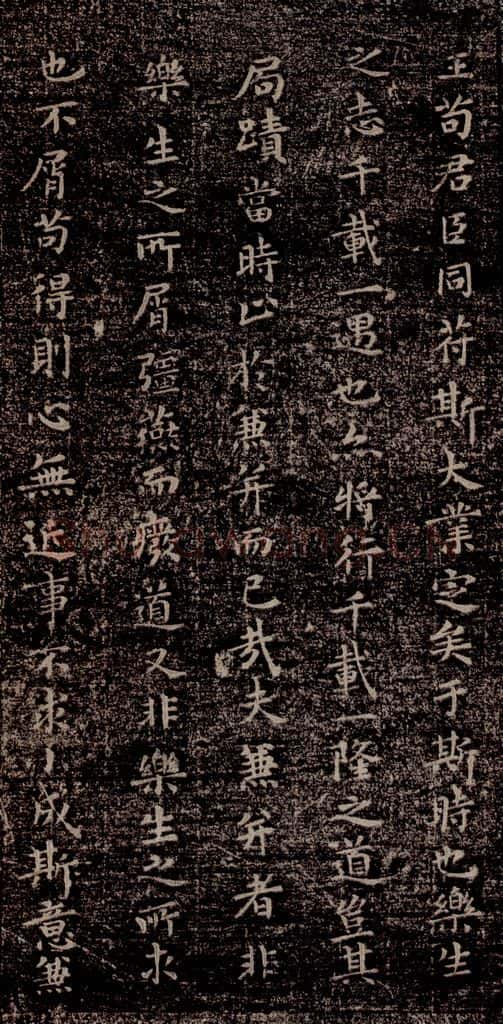 王苟君臣同符斯大業定矣于斯時也樂生
之志千載一遇也亦將行千載一隆之道豈其
局蹟當時止於兼并而已哉夫兼并者非
樂生之所屑彊燕而廢道又非樂生之所求
也不屑苟得則心無近事不求小成斯意兼